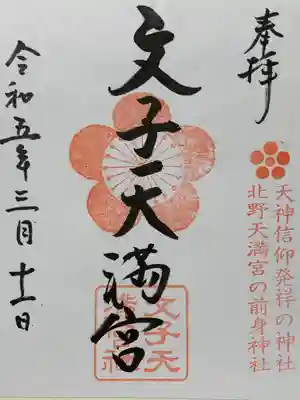 奉拝
天神信仰発祥の神社
北野天満宮の前身神社
文子天満宮
令和五年三月十一日